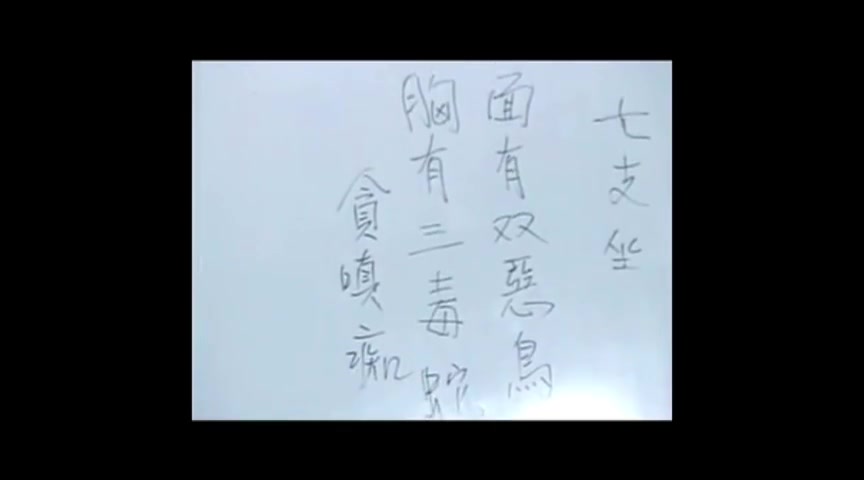 七支坐
面有双惡鳥
胸有三毒蛇
貪嗔痴